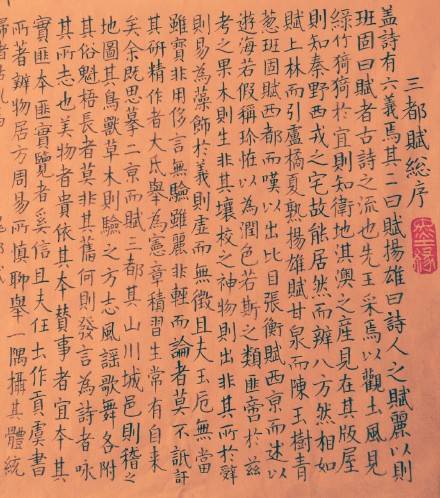 三都賦総序
盖詩有六義焉其二曰賦揚雄曰詩人之賦麗以則
班固曰賦者古詩之流也先王采焉以觀土風見
綠竹猗猗於宜則知衛地淇澳之産見在其版屋
則知秦野西戎之宅故能居然而辨八方然相如
賦上林而引盧橘夏熟揚雄賦甘泉而陳玉樹青
葱班固賦西都而嘆以出比目張衡賦西京而述以
遊海若假稱珍恠以為潤色若斯之類匪啻於茲
考之果木則生非其壤校之神物則出非其所於辭
則易為藻飾於義則虛而無徵且夫玉卮無當
雖寶非用侈言無驗雖麗非輕而論者莫不詆訐
其研精作者大氐舉為憲章積習生常有自来
矣余既思摹二京而賦三都其山川城邑則稽之
地圖其鳥獸草木則驗之方志風謠歌舞各附
其俗魁梧長者莫非其舊何則發言為詩者咏
其所志也美物者貴依其本賛事者宜本其
實匪本匪實覽者奚信且夫任土作貢虞書
所著辨物居方周易所慎聊舉一隅攝其體統